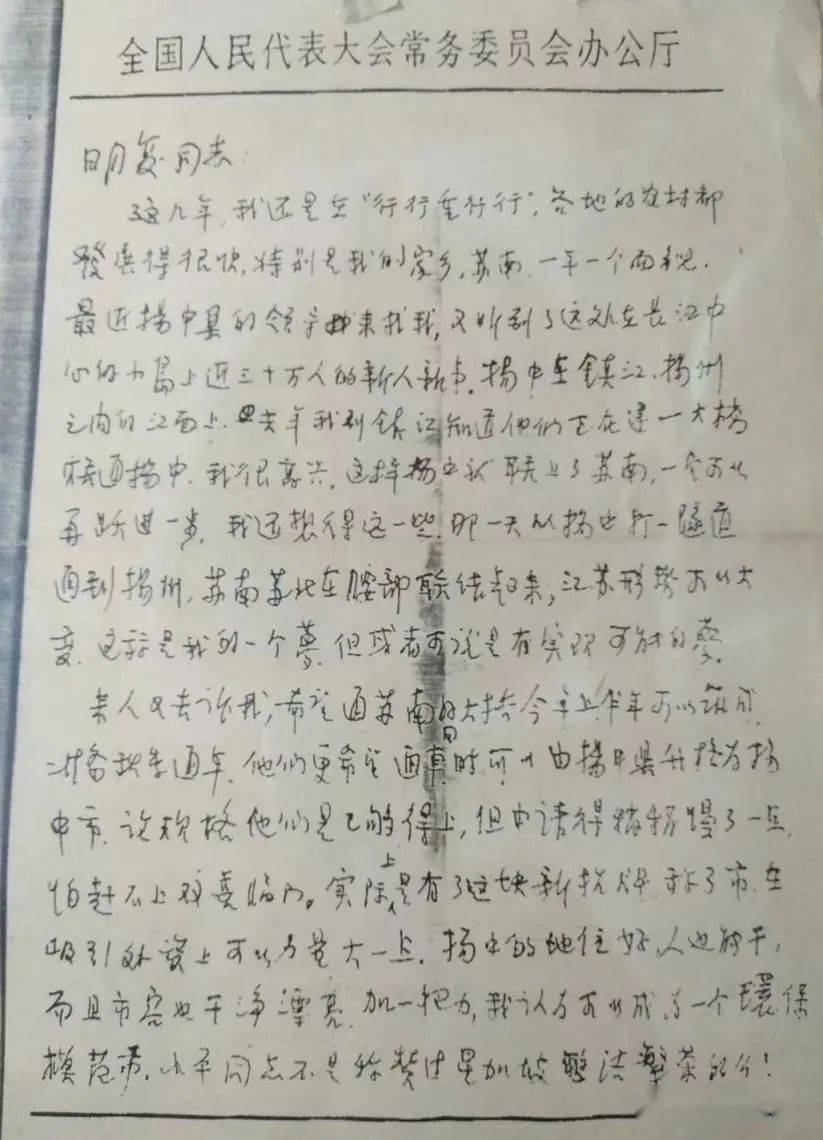 全国人民代表大会常务委员会办公厅
明复同志：
这几年，我还是在“行行重行行”，各地的农村都
發展得很快，特别是我的家乡，苏南，一年一个面貌．
最近扬中县的领导来找我，又听到了这处在长江中
心的小岛上近三十万人的新人新事．扬中在鎮江、扬州
之间的江面上．去年我到鎮江知道他们正在建一大桥
接通扬中．我很高兴．这样扬中就联上了苏南，一定可以
再跃进一步．我还想得远一些．那一天从扬中打一隧道
通到扬州，苏南苏北在腰部联结起来，江苏形势可以大
变．这许是我的一个夢．但或者可说是有实现可能的夢．
来人又告诉我，希望通苏南的大桥今年上半年可以筑成
准备秋季通车．他们更希望通車时可以由扬中县升格为扬
中市．论规格他们是已够得上，但申请得稍稍慢了一点，
怕赶不上双喜临门。实际上是有了这块新招牌 称了市．在
吸引外资上可以力量大一点．扬中的地位好，人也能干，
而且市容也干净漂亮．加一把力，我认为可以成为一个環保
模范市．小平同志不是称赞过星加坡整洁繁荣的么！